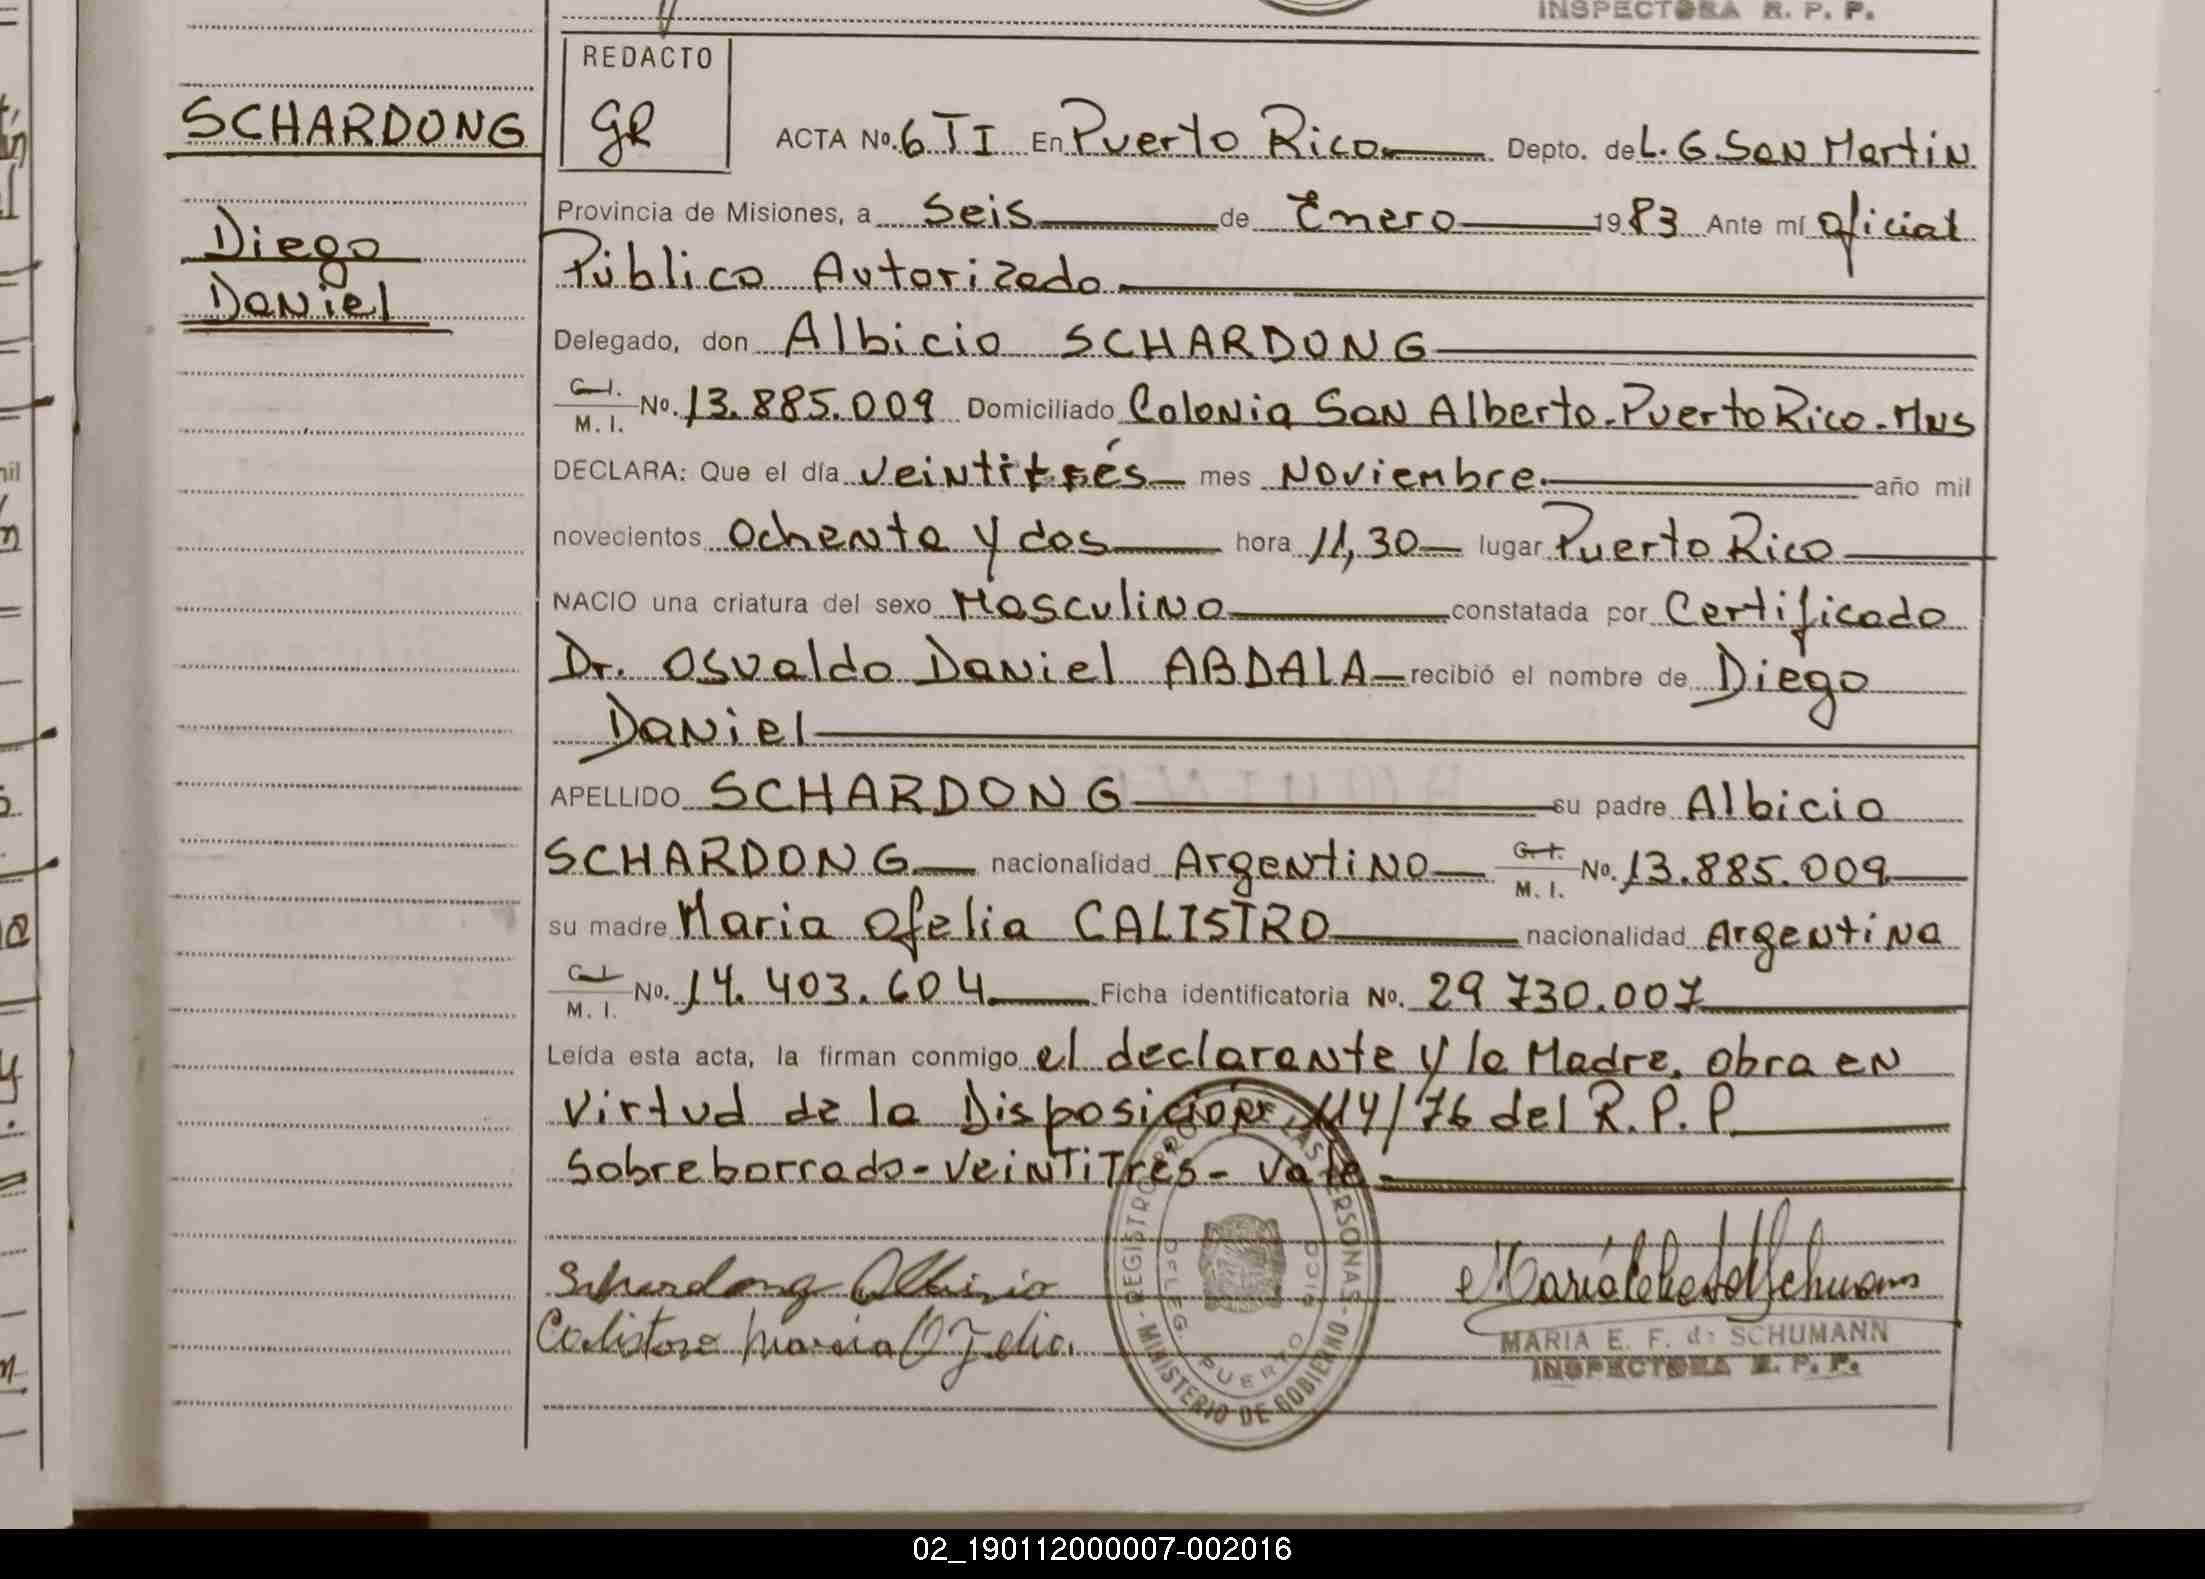 INSPECTORA R. P. P.
REDACTO
GR
SCHARDONG
Diego
Daniel
ACTA No. 6 TI En Puerto Rico Depto. de L. G. San Martin
Provincia de Misiones, a Seis de Enero 1983 Ante mí Oficial
Público Autorizado
Delegado, don Albicio SCHARDONG
C. I. M. I. No. 13.885.009 Domiciliado Colonia San Alberto-Puerto Rico-Mns
DECLARA: Que el día veintitrés mes Noviembre. año mil
novecientos Ochenta y dos hora 11,30 lugar Puerto Rico
NACIO una criatura del sexo Masculino constatada por Certificado
Dr. Osvaldo Daniel ABDALA recibió el nombre de Diego
Daniel
APELLIDO SCHARDONG su padre Albicio
SCHARDONG nacionalidad Argentino C. I. M. I. No. 13.885.009
su madre Maria Ofelia CALISTRO nacionalidad Argentina
C. I. M. I. No. 14.403.604 Ficha identificatoria No. 29 730.007
Leída esta acta, la firman conmigo el declarante y la Madre. Obra en
virtud de la Disposición 114/76 del R. P. P.
Sobreborrado-veintitrés-vale
Schardong Albicio
Maria Ofelia
REGISTRO PROV. DE LAS PERSONAS - MINISTERIO DE GOBIERNO
DELEG. PUERTO RICO
MARIA E. F. de SCHUMANN
INSPECTORA R. P. P.
02_190112000007-002016